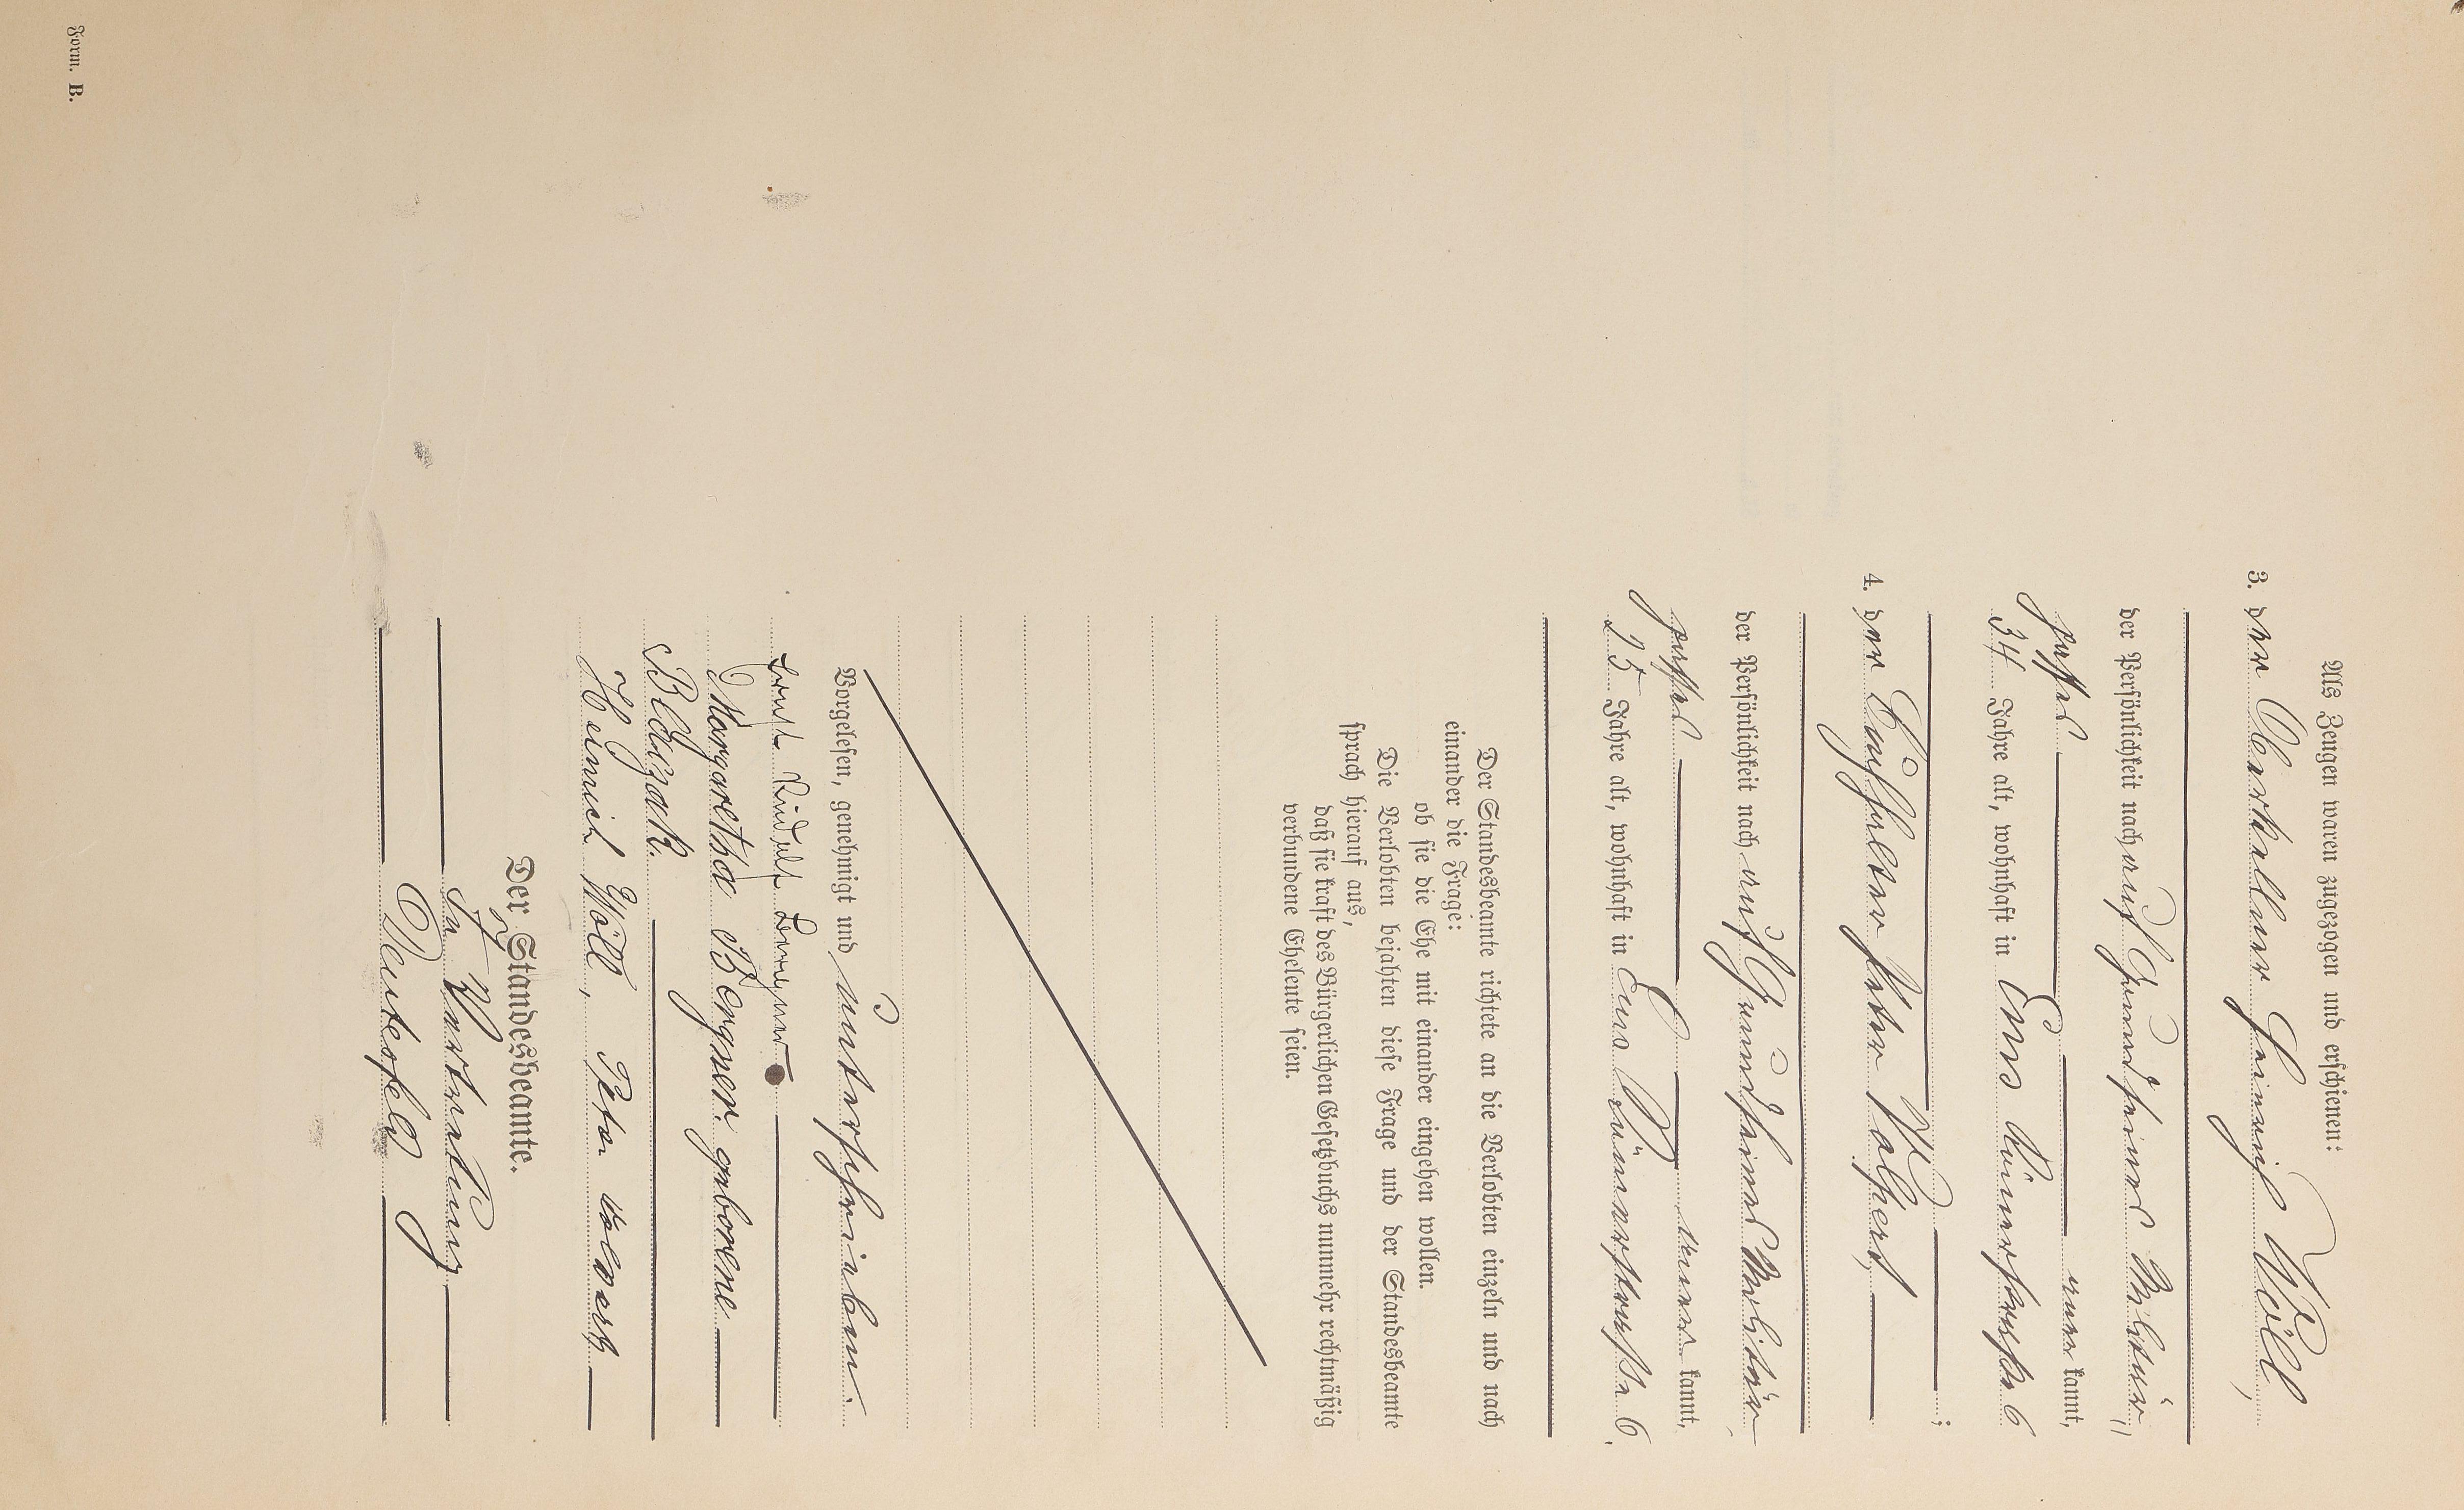 Als Zeugen waren zugezogen und erschienen:
3. der Oberkellner Heinrich Wöll,
der Persönlichkeit nach auf Grund seines Militär,
passes aner kannt,
34 Jahre alt, wohnhaft in Ems Römerstraße 6
;
4. der Buchhalter Peter Volpert
der Persönlichkeit nach auf Grund seines Militär
passes aner kannt,
25 Jahre alt, wohnhaft in Ems Römerstraße 6.
Der Standesbeamte richtete an die Verlobten einzeln und nach
einander die Frage:
ob sie die Ehe mit einander eingehen wollen.
Die Verlobten bejahten diese Frage und der Standesbeamte
sprach hierauf aus,
daß sie kraft des Bürgerlichen Gesetzbuchs nunmehr rechtmäßig
verbundene Eheleute seien.
Vorgelesen, genehmigt und unterschrieben.
Ernst Rudolf Bergner
Margaretha Bergner geborene
Blaczak.
Heinrich Wöll, Peter
Der Standesbeamte.
In Vertretung
Deutesfeld
Form. B.